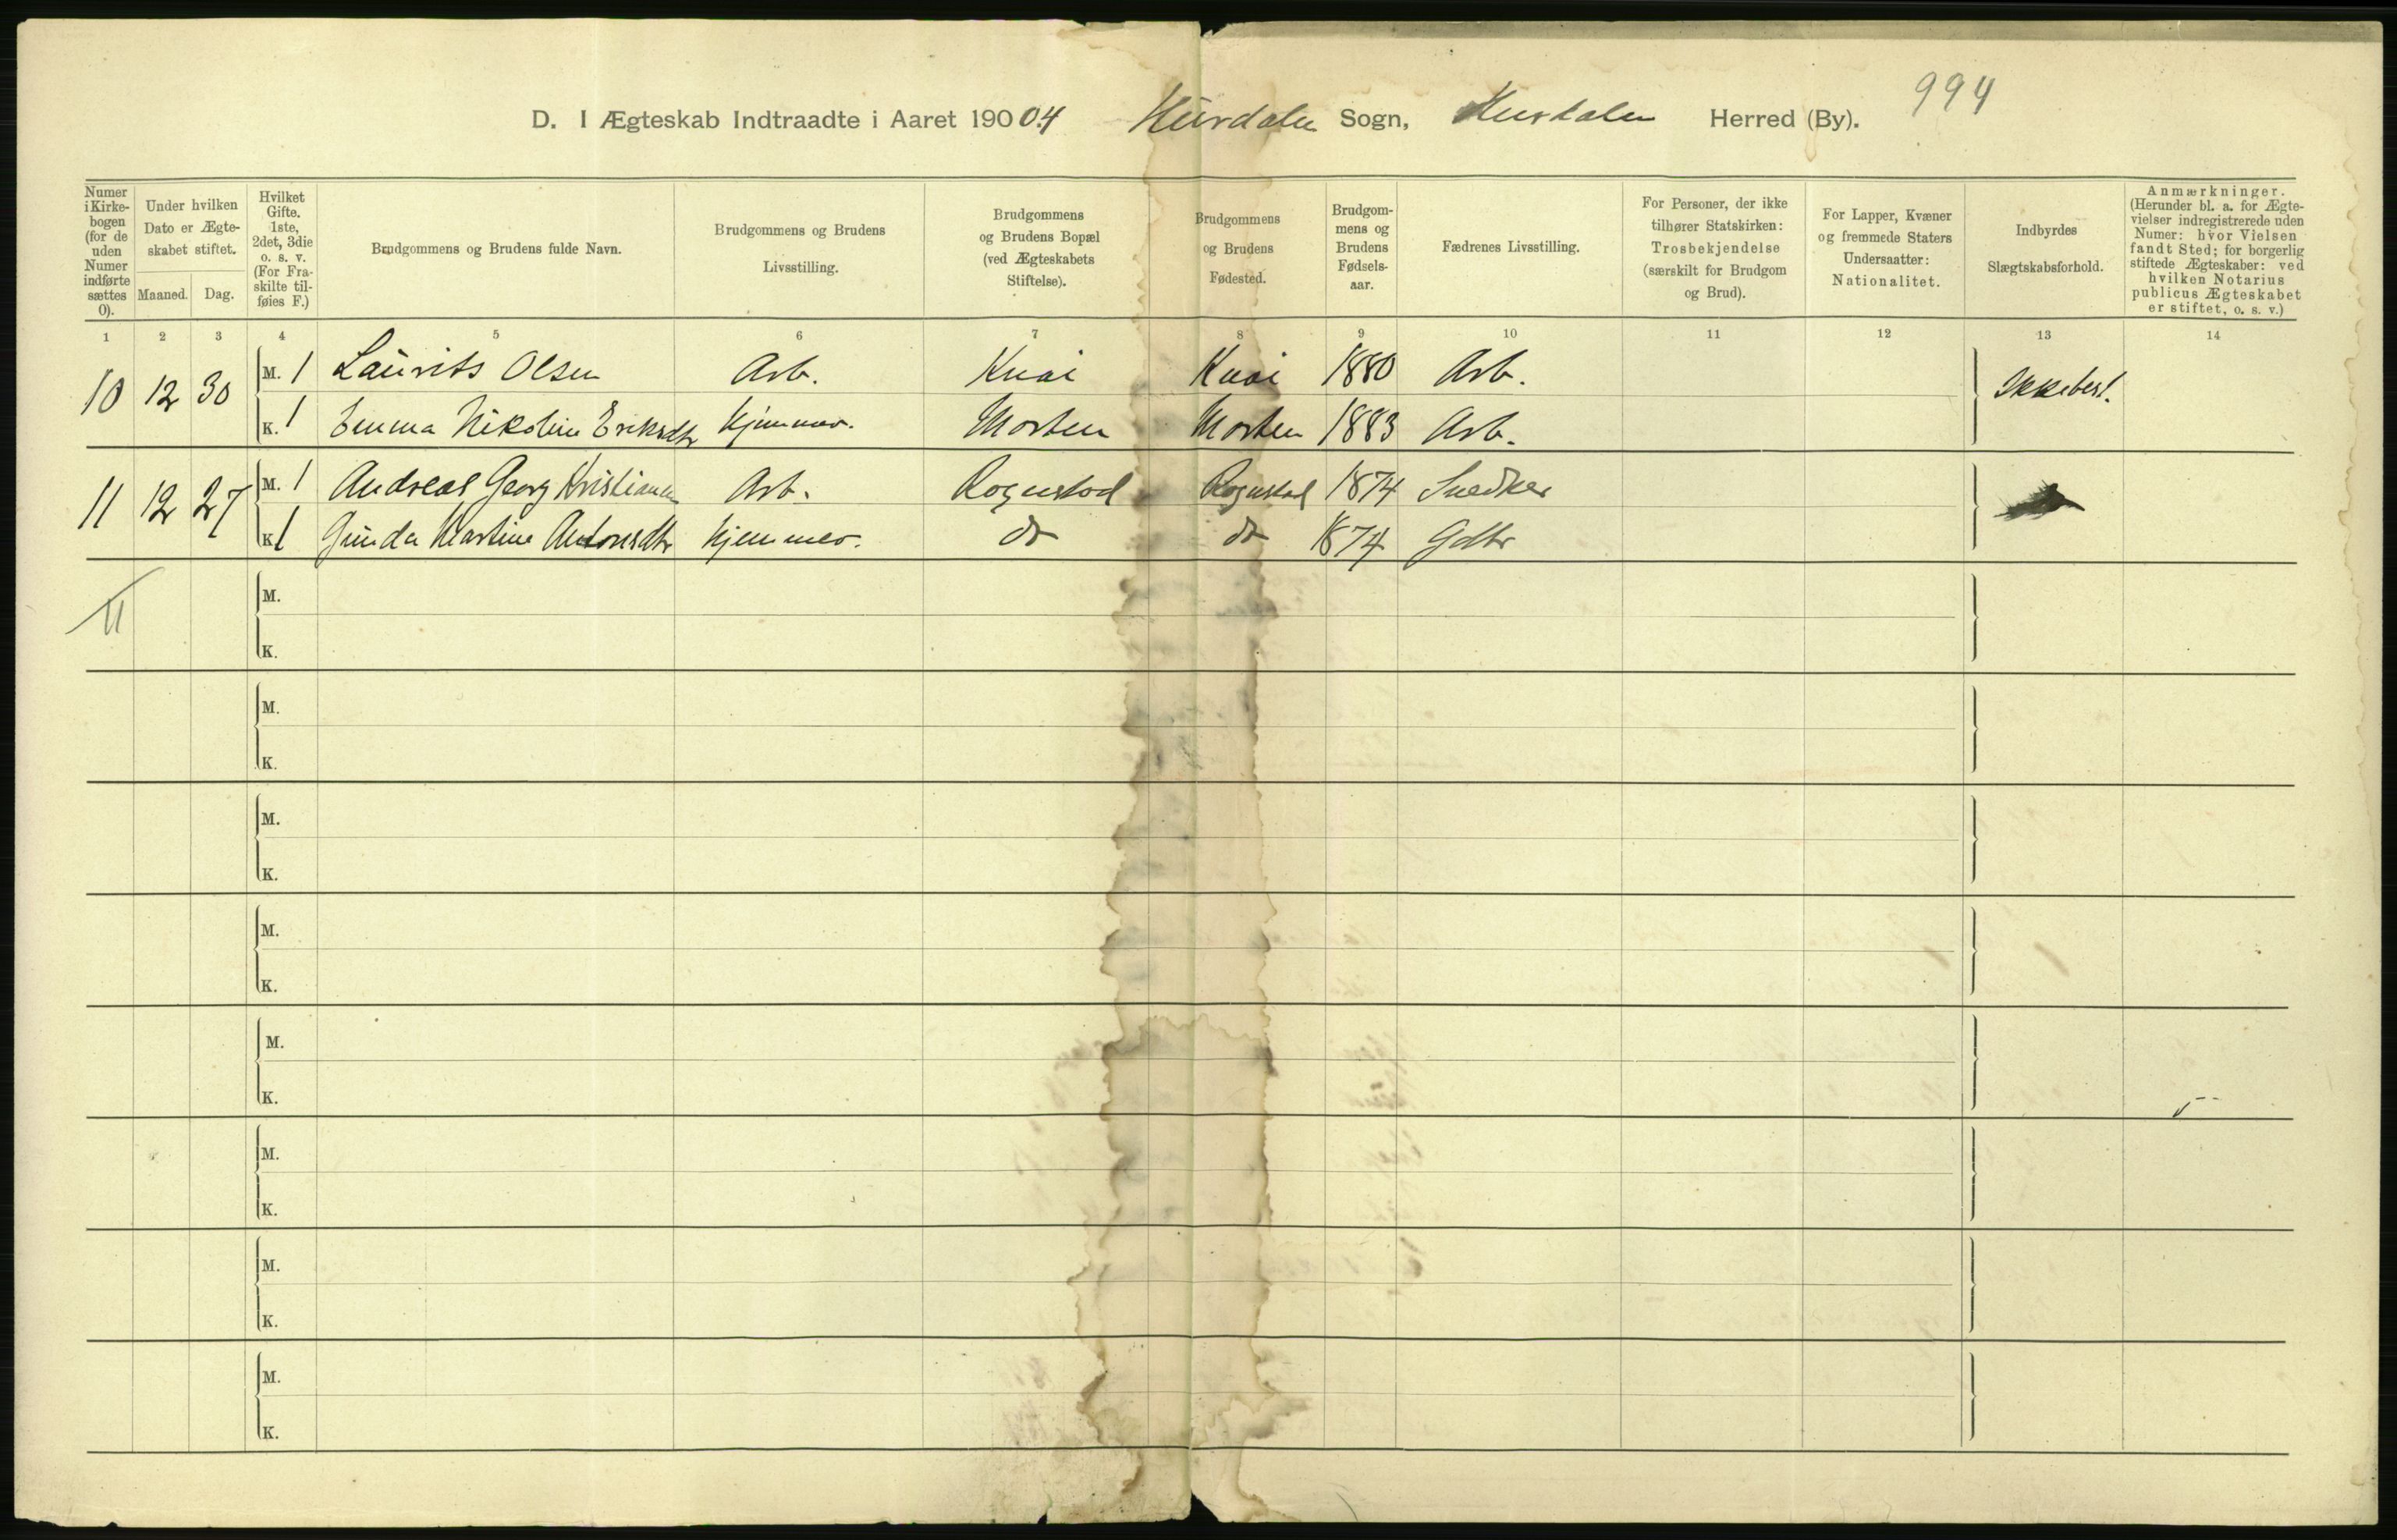 994
D. I Ægteskab Indtraadte i Aaret 19004 Hurdalen Sogn, Hurdalen Herred (By).
Numer i Kirkebogen (for de uden Numer indførte sættes 0).
Under hvilken Dato er Ægteskabet stiftet.
Maaned. Dag.
Hvilket Gifte. 1ste, 2det, 3die o. s. v. (For Fraskilte tilføies F.)
Brudgommens og Brudens fulde Navn.
Brudgommens og Brudens Livsstilling.
Brudgommens og Brudens Bopæl (ved Ægteskabets Stiftelse).
Brudgommens og Brudens Fødested.
Brudgommens og Brudens Fødselsaar.
Fædrenes Livsstilling.
For Personer, der ikke tilhører Statskirken: Trosbekjendelse (særskilt for Brudgom og Brud).
For Lapper, Kvæner og fremmede Staters Undersaatter: Nationalitet.
Indbyrdes Slægtskabsforhold.
Anmærkninger. (Herunder bl. a. for Ægtevielser indregistrerede uden Numer: hvor Vielsen fandt Sted; for borgerlig stiftede Ægteskaber: ved hvilken Notarius publicus Ægteskabet er stiftet, o. s. v.)
1 2 3 4 5 6 7 8 9 10 11 12 13 14
10 12 30 M. 1 Laurits Olsen Arb. Knai Knai 1880 Arb. Ikkebesl.
K. 1 Emma Nikoline Eriksdtr Hjemmev. Morten Morten 1883 Arb.
11 12 27 M. 1 Andreas Georg Kristiansen Arb. Rognstad Rognstad 1874 Snedker
K. 1 Gunda Martine Antonsdtr Hjemmev. do do 1874 Gdbr
11
M.
K.
M.
K.
M.
K.
M.
K.
M.
K.
M.
K.
M.
K.
M.
K.